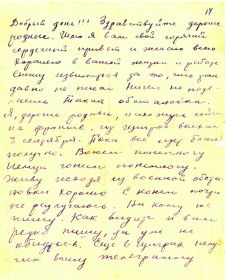 14
Добрый день!!! Здравствуйте дорогие
родные. Шлю я вам свой горячий
сердечный привет и желаю всего
хорошего в вашей жизни и работе
извиняюсь за то, что
давно не писал Ничего не поде-
лаешь такая обстановка.
Я, дорогие родные, нахожусь сей-
на фронте. из Цигров выехал
3 сентября. Пока все идет благо-
получно. Воюем понемногу
Немца гоним понемногу.
Живу исходя из военной обста
новки хорошо С конем почти
не разлучаюсь. Ни кому не
пишу. Как видите и вам
редко пишу, да уж не
обижайтесь. Еще в Циграх полу-
чил вашу телеграмму